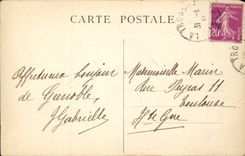 CARTE POSTALE
LA TRO
20
Affectueux bonjour
de Grenoble,
Gabrielle
Mademoiselle Marin
Rue Peyras 11
Toulouse
Hte Gne